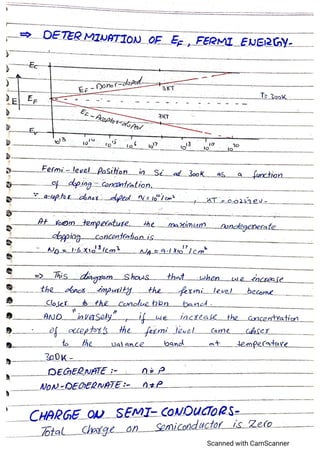 ⇒ DETERMINATION OF EF, FERMI ENERGY-
Ec
EF - Donor-doped
3KT
T= 300K
E EF
EF - Acceptor-doped
3KT
Ev
10¹³ 10¹⁴ 10¹⁵ 10¹⁶ 10¹⁷ 10¹⁸ 10¹⁹ 10²⁰
Fermi-level Position in Si at 300K as a function
of doping concentration.
donor doped KT = 0.0259eV-
At room temperature the maximum nondegenerate
dopping concentration is
ND = 1.6X10¹⁸/cm³ NA = 9.1X10¹⁷/cm³
⇒ This diagram shows that when we increase
the donor impurity the fermi level become
closer to the conduction band.
AND "inversely", if we increase the concentration
of acceptors the fermi level came closer
to the valance band at temperature
300K-
DEGERNATE:- n=P
NON-DEGERNATE:- n≠P
CHARGE ON SEMI-CONDUCTORS-
Total Charge on Semiconductor is Zero
Scanned with CamScanner